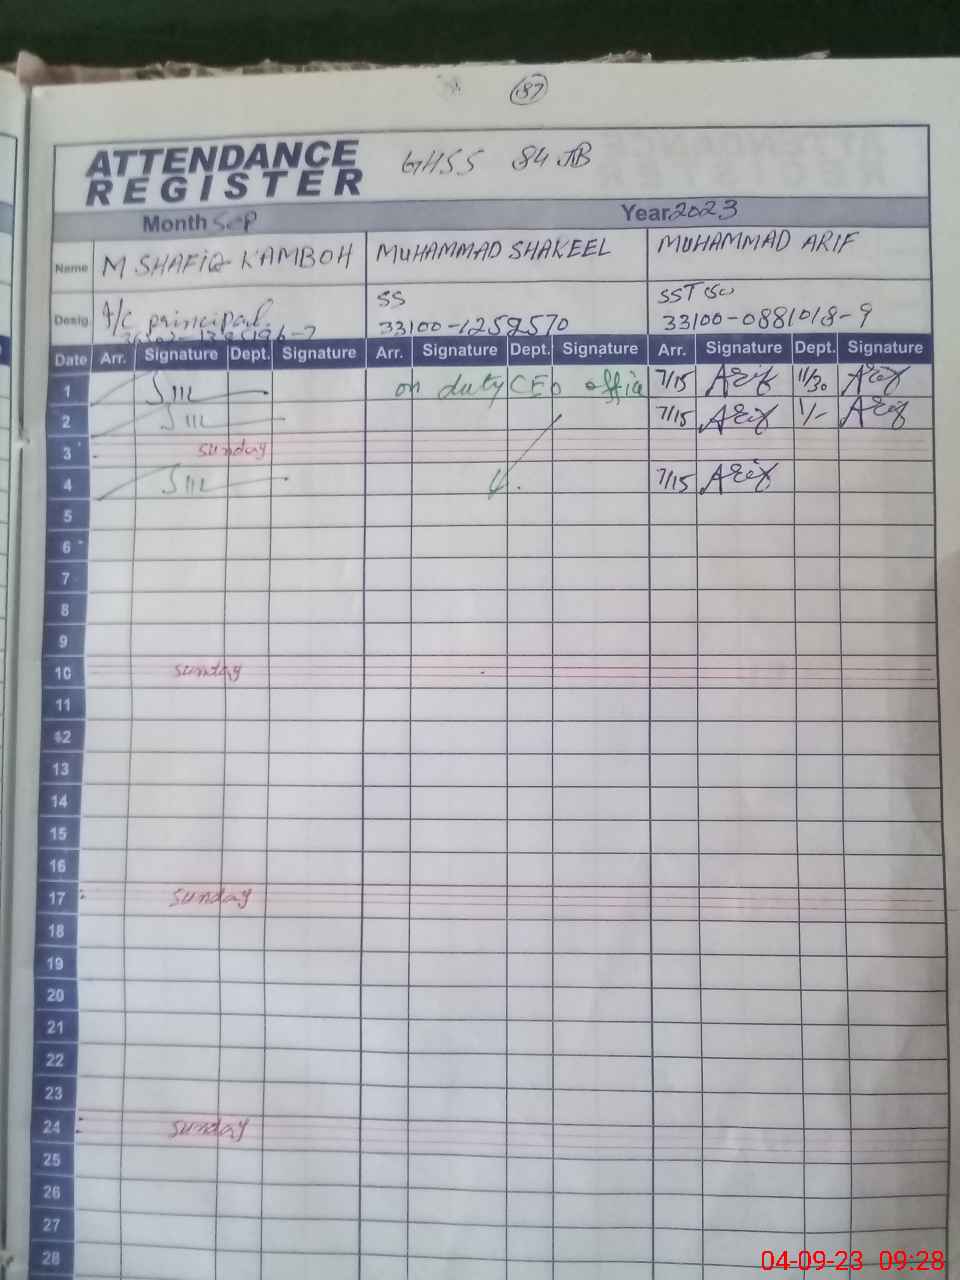 187
ATTENDANCE
REGISTER
GHSS 84 JB
Month Sep
Year 2023
Name M SHAFIQ KAMBOH MUHAMMAD SHAKEEL MUHAMMAD ARIF
Desig. I/C principal. SS SST (Sc)
33100-1259570 33100-0881018-9
Date Arr. Signature Dept. Signature Arr. Signature Dept. Signature Arr. Signature Dept. Signature
1 on duty CEO office 7/15 Arif 11/30 Arif
2 7/15 Arif 1/- Arif
3 sunday
4 7/15 Arif
5
6
7
8
9
10 sunday
11
12
13
14
15
16
17 sunday
18
19
20
21
22
23
24 sunday
25
26
27
28
04-09-23 09:28